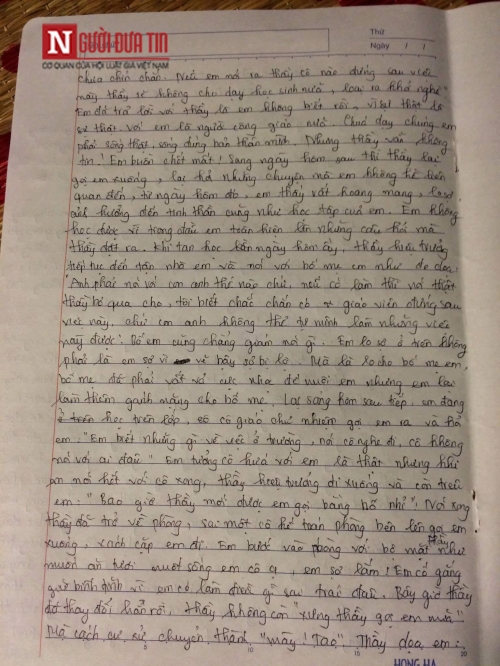 NGƯỜI ĐƯA TIN
CƠ QUAN CỦA HỘI LUẬT GIA VIỆT NAM
Thứ
Ngày / /
chưa chín chắn. Nếu em nói ra thầy cô nào đứng sau việc
này thầy sẽ không cho dạy học sinh nữa, loại ra khỏi nghề"
Em đã trả lời với thầy là em không biết rồi, vì sự thật là
sự thật. Với em là người công giáo nữa. Chúa dạy chúng em
phải sống thật, sống đúng bản thân mình. Nhưng thầy vẫn không
tin! Em buồn chết mất! Sang ngày hôm sau thì thầy lại
gọi em xuống, lại hỏi những chuyện mà em không hề liên
quan đến, từ ngày hôm đó, em thấy rất hoang mang, lo sợ
ảnh hưởng đến tinh thần cũng như học tập của em. Em không
học được vì trong đầu em toàn hiện lên những câu hỏi mà
thầy đặt ra. Khi tan học hôm ấy, thầy hiệu trưởng
tiếp tục đến tận nhà em và nói với bố mẹ em như đe dọa:
"Anh phải nói với con anh thế nào chứ, nếu có làm thì nói thật
thầy bỏ qua cho, tôi biết chắc chắn có giáo viên đứng sau
việc này, chứ con anh không thể tự mình làm những việc
này được". Bố em cũng chẳng giám nói gì. Em lo sợ ở trên không
phải là em sợ vì vẻ bây sợ bị lộ. Mà là lo cho bố mẹ em,
bố mẹ đã phải vất vả cực nhọc để nuôi em nhưng em lại
làm thêm gánh nặng cho bố mẹ. Lại sang hôm sau tiếp, em đang
học trên lớp, cô giáo chủ nhiệm gọi em ra và hỏi
em: "Em biết những gì về việc ở trường, nói cô nghe đi, cô không
nói với ai đâu". Em tưởng cô hứa với em là thật nhưng khi
em nói hết với cô xong, thầy hiệu trưởng đi xuống và còn trêu
em: "Bao giờ thầy mới được em gọi bằng bố nhỉ"! Nói xong
thầy đã trở về phòng, sai một cô kế toán phòng bên lên gọi em
xuống, xách cặp em đi. Em bước vào phòng với bộ mặt thầy như
muốn ăn tươi nuốt sống em cô ạ, em sợ lắm! Em cố gắng
giữ bình tĩnh vì em có làm điều gì sai trái đâu. Bây giờ thầy
đã thay đổi hẳn rồi, thầy không còn "xưng thầy gọi em nữa".
Mà cách cư xử chuyển thành "mày! Tao". Thầy dọa em:
HỒNG HÀ